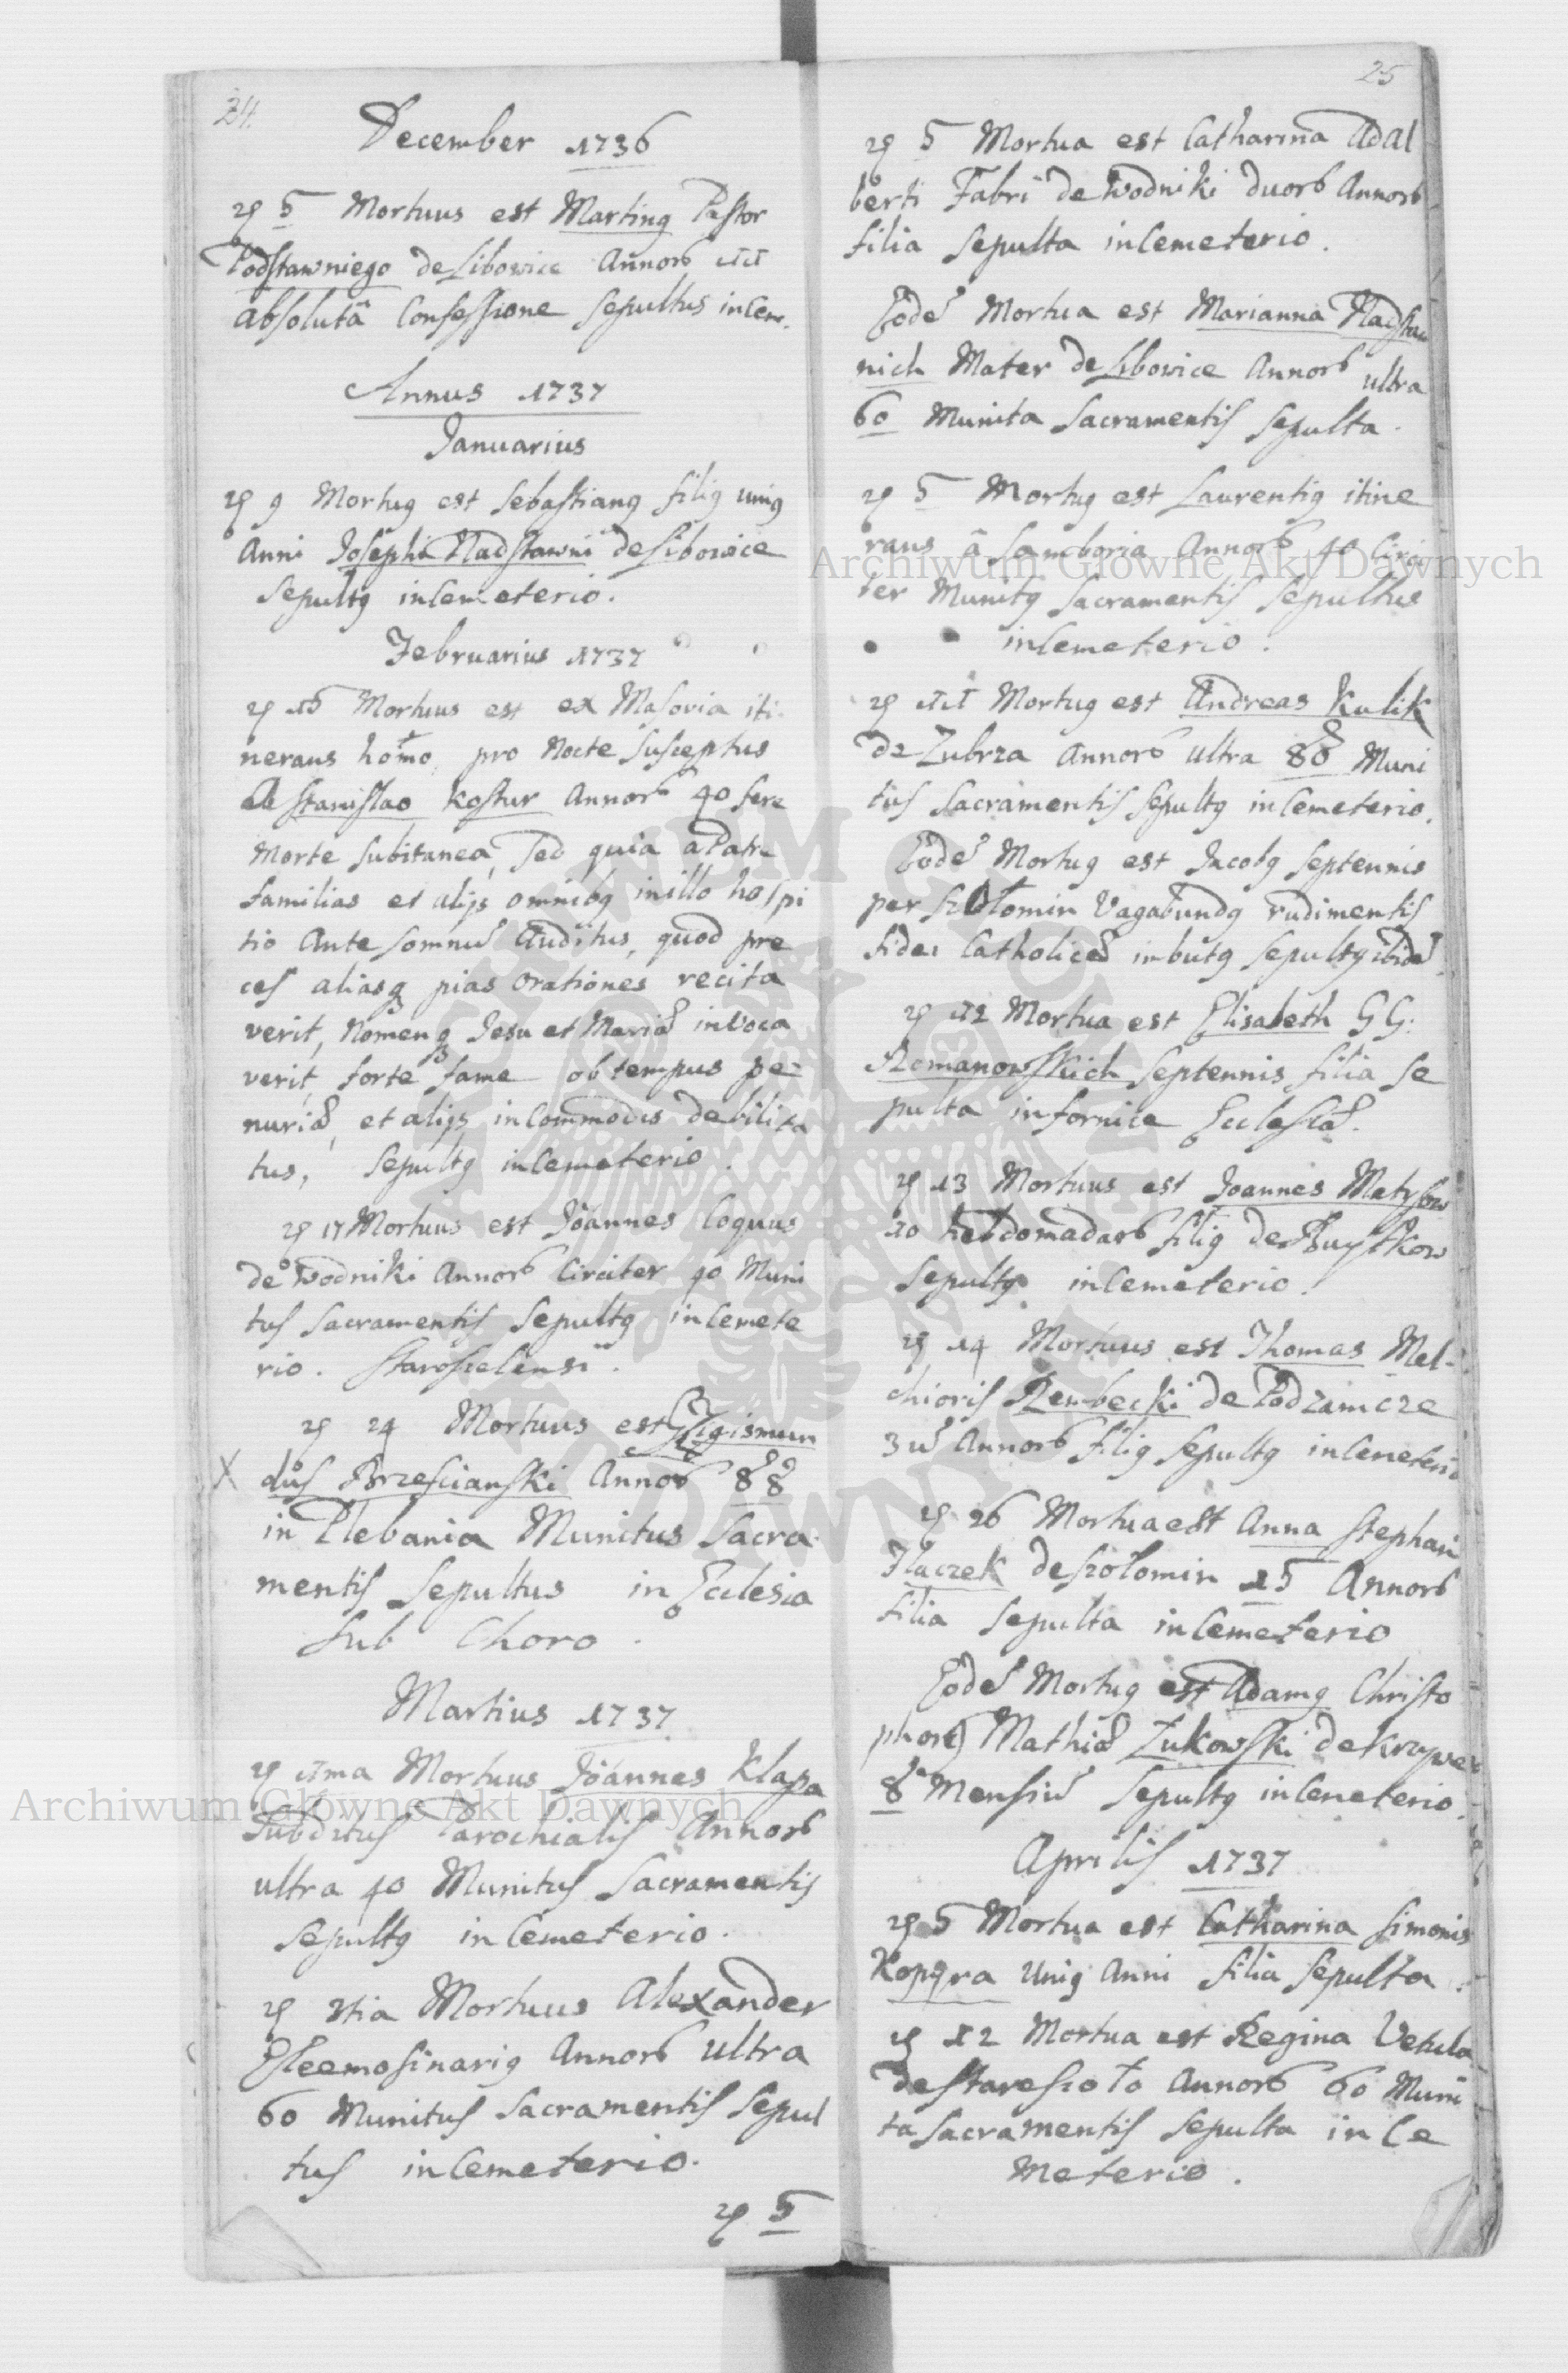 24.
December 1736
29 5 Mortuus est Martinꝯ Pastor
Podstawniego de Libowice Annorб 11
absolutâ Confessione Sepultus in Cem.
Annus 1737
Januarius
9 Mortuꝯ est Sebastianꝯ filiꝯ uniꝯ
Anni Josephi Nadstawni de Libowice
Sepultꝯ in Cemeterio.
Februarius 1737
15 Mortuus est ex Masovia iti
nerans homo pro Nocte Susceptus
a Stanislao Kostur Annorб 40 fere
Morte Subitanea, Sed quia a Patre
familias et alijs omnibꝯ in illo hospi
tio Ante Somnu Auditus, quod pre
ces aliasqꝫ pias Orationes recita
verit, Nomenqꝫ Jesu et Mariæ invoca
verit, forte fame ob tempus pe
nuriæ, et alijs inCommodis debilita
tus, Sepultꝯ in Cemeterio.
17 Mortuus est Joannes Coquus
de Wodniki Annorб Circiter 40 Muni
tus Sacramentis Sepultꝯ in Cemete
rio. Starosielensi.
24 Mortuus est Sigismun
X dus Brzescianski Annorб 88
in Plebania Munitus Sacra
mentis Sepultus in Ecclesia
Sub Choro.
Martius 1737
1ma Mortuus Joannes Klapa
Subditus Parochialis Annorб
ultra 40 Munitus Sacramentis
Sepultꝯ in Cemeterio.
3tia Mortuus Alexander
Eleemosinariꝯ Annorб ultra
60 Munitus Sacramentis Sepul
tus in Cemeterio.
5
25
5 Mortua est Catharina Adal
berti Fabri de Wodniki duorб Annorб
filia Sepulta in Cemeterio.
Eode Mortua est Marianna Nadstaw
nich Mater de Libowice Annorб ultra
60 Munita Sacramentis Sepulta.
5 Mortuꝯ est Laurentiꝯ itine
rans â Samboria Annorб 40 Circi
ter Munitꝯ Sacramentis Sepultus
in Cemeterio.
11 Mortuꝯ est Andreas Kulik
de Zubrza Annorб ultra 80 Muni
tus Sacramentis Sepultꝯ in Cemeterio.
Eode Mortuꝯ est Jacobꝯ Septennis
per Szołomin Vagabundꝯ rudimentis
fidei Catholicæ imbutꝯ Sepultꝯ ibide
12 Mortua est Elisabeth GG:
Romanowskich Septennis filia Se
pulta in fornice Ecclesiæ.
13 Mortuus est Joannes Matysow
10 hebdomadarб filiꝯ de
Sepultꝯ in Cemeterio.
14 Mortuus est Thomas Mel-
chioris Rembecki de Podzamcze
3u Annorб filiꝯ Sepultꝯ in Cemeterio
26 Mortua est Anna Stephani
Tłaczek de Szołomin 15 Annorб
filia Sepulta in Cemeterio
Eode Mortuꝯ est Adamꝯ Christo
phorꝯ Mathiæ Zukowski de
8 Mensiu Sepultꝯ in Cemeterio.
Aprilis 1737
5 Mortua est Catharina Simonis
Kopyra Uniꝯ Anni filia Sepulta.
12 Mortua est Regina Vetula
de Staresioło Annorб 60 Muni
ta Sacramentis Sepulta in Ce
meterio.
Archiwum Główne Akt Dawnych
Archiwum Główne Akt Dawnych
ARCHIWUM GŁÓWNE AKT DAWNYCH